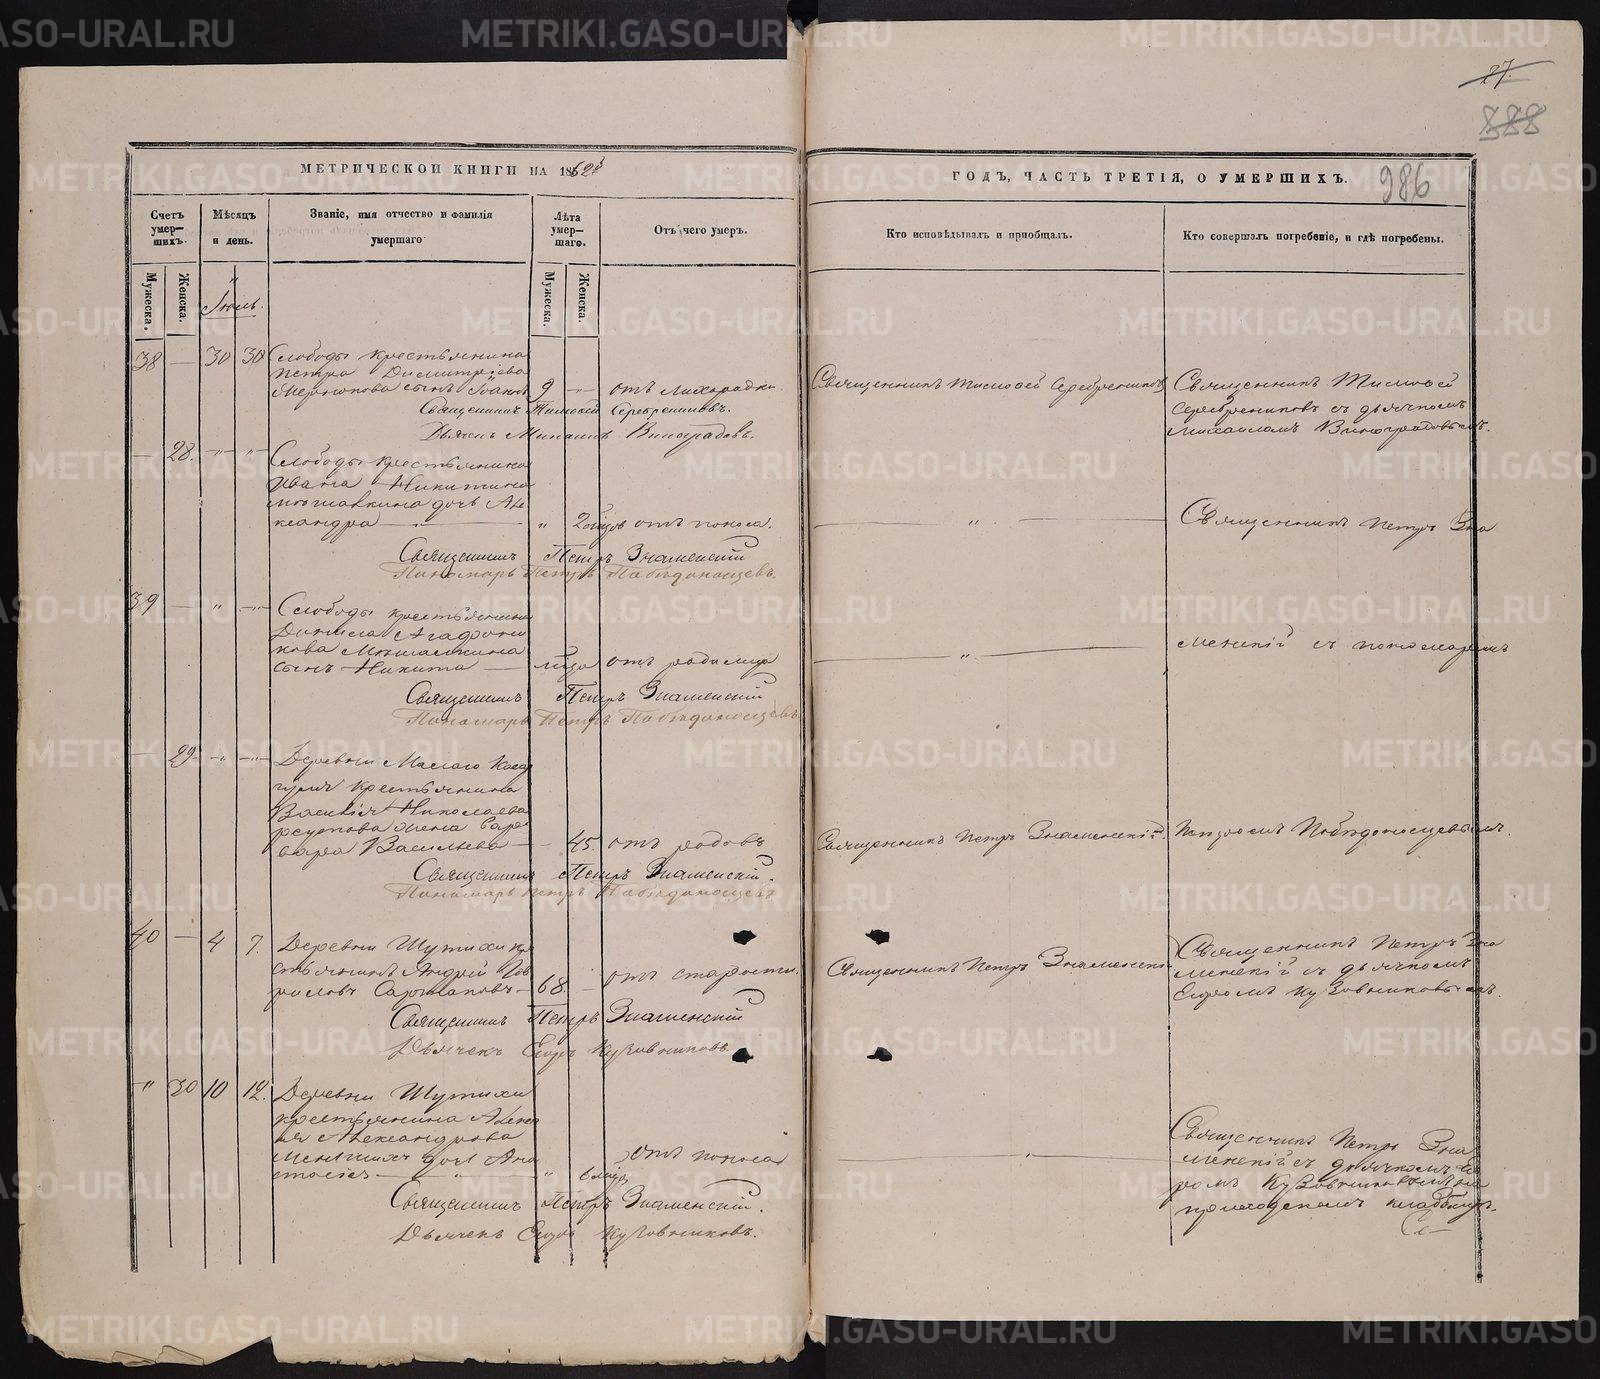 27.
888
986
МЕТРИЧЕСКОЙ КНИГИ НА 1862й
ГОДЪ, ЧАСТЬ ТРЕТІЯ, О УМЕРШИХЪ.
Счетъ умер— шихъ.
Мѣсяцъ и день.
Званіе, имя отчество и фамилія умершаго
Лѣта умер— шаго.
Отъ чего умеръ.
Кто исповѣдывалъ и пріобщалъ.
Кто совершалъ погребеніе, и гдѣ погребены.
Мужеска.
Женска.
Мужеска.
Женска.
Іюль.
38 — 30 30 Слободы крестьянина
Петра Димитріева
сынъ 9 — отъ лихорадки
Священникъ Тимофей Серебренниковъ
Священникъ Тимофей
Серебренниковъ съ дьячкомъ
Михаиломъ Виноградовымъ.
Священникъ Тимофей Серебренниковъ.
Дьячекъ Михаилъ Виноградовъ.
— 28. Слободы крестьянина
Ивана Никитина
дочь Але
ксандра — " 2 отъ поноса.
Священникъ Петръ Зна
Священникъ Петръ Знаменскій
Пономарь Петръ Побѣдоносцевъ.
39 — " — Слободы крестьянина
Данила Агафони
кова
сынъ Никита — отъ родимца
менскій съ пономаремъ
Священникъ Петръ Знаменскій
Пономарь Петръ Побѣдоносцевъ.
— 29 Деревни Малаго
крестьянина
Василія Николаева
жена Вар
вара Васильева — 45. отъ родовъ
Священникъ Петръ Знаменскій.
Петромъ Побѣдоносцевымъ.
Священникъ Петръ Знаменскій.
Пономарь Петръ Побѣдоносцевъ
40 — 4 7. Деревни Шутихи кре
стьянинъ Андрей
68 — отъ старости.
Священникъ Петръ Знаменскій
Священникъ Петръ Зна
менскій съ дьячкомъ
Егоромъ Кузовниковымъ.
Священникъ Петръ Знаменскій
Дьячекъ Егоръ Кузовниковъ.
" 30 10 12. Деревни Шутихи
крестьянина Алексѣ
я Александрова
Меньшихъ дочь Ана
стасія — " 6 отъ поноса
Священникъ Петръ Зна
менскій съ дьячкомъ Его
ромъ Кузовниковымъ на
приходскомъ кладбищѣ.
Священникъ Петръ Знаменскій.
Дьячекъ Егоръ Кузовниковъ.
METRIKI.GASO-URAL.RU